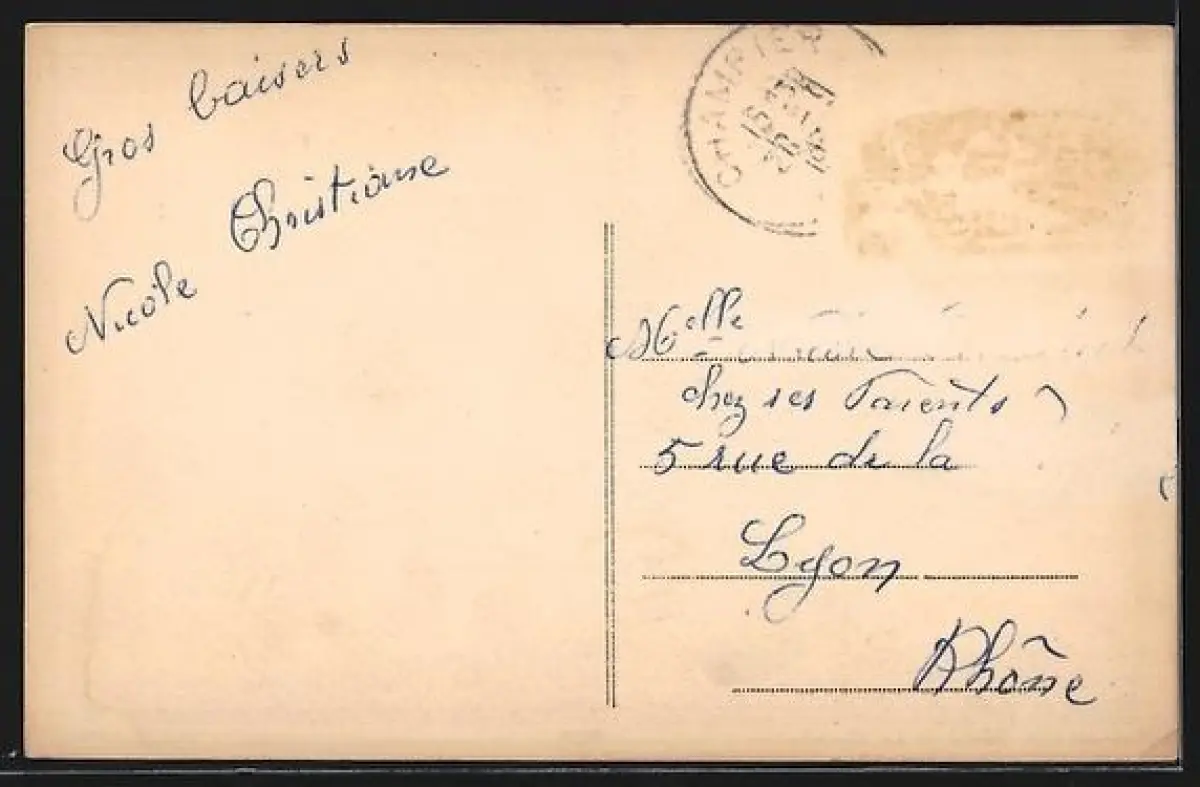 Gros baisers
Nicole Christiane
CHAMPIER
Melle
chez ses Parents
5 rue de la
Lyon
Rhône